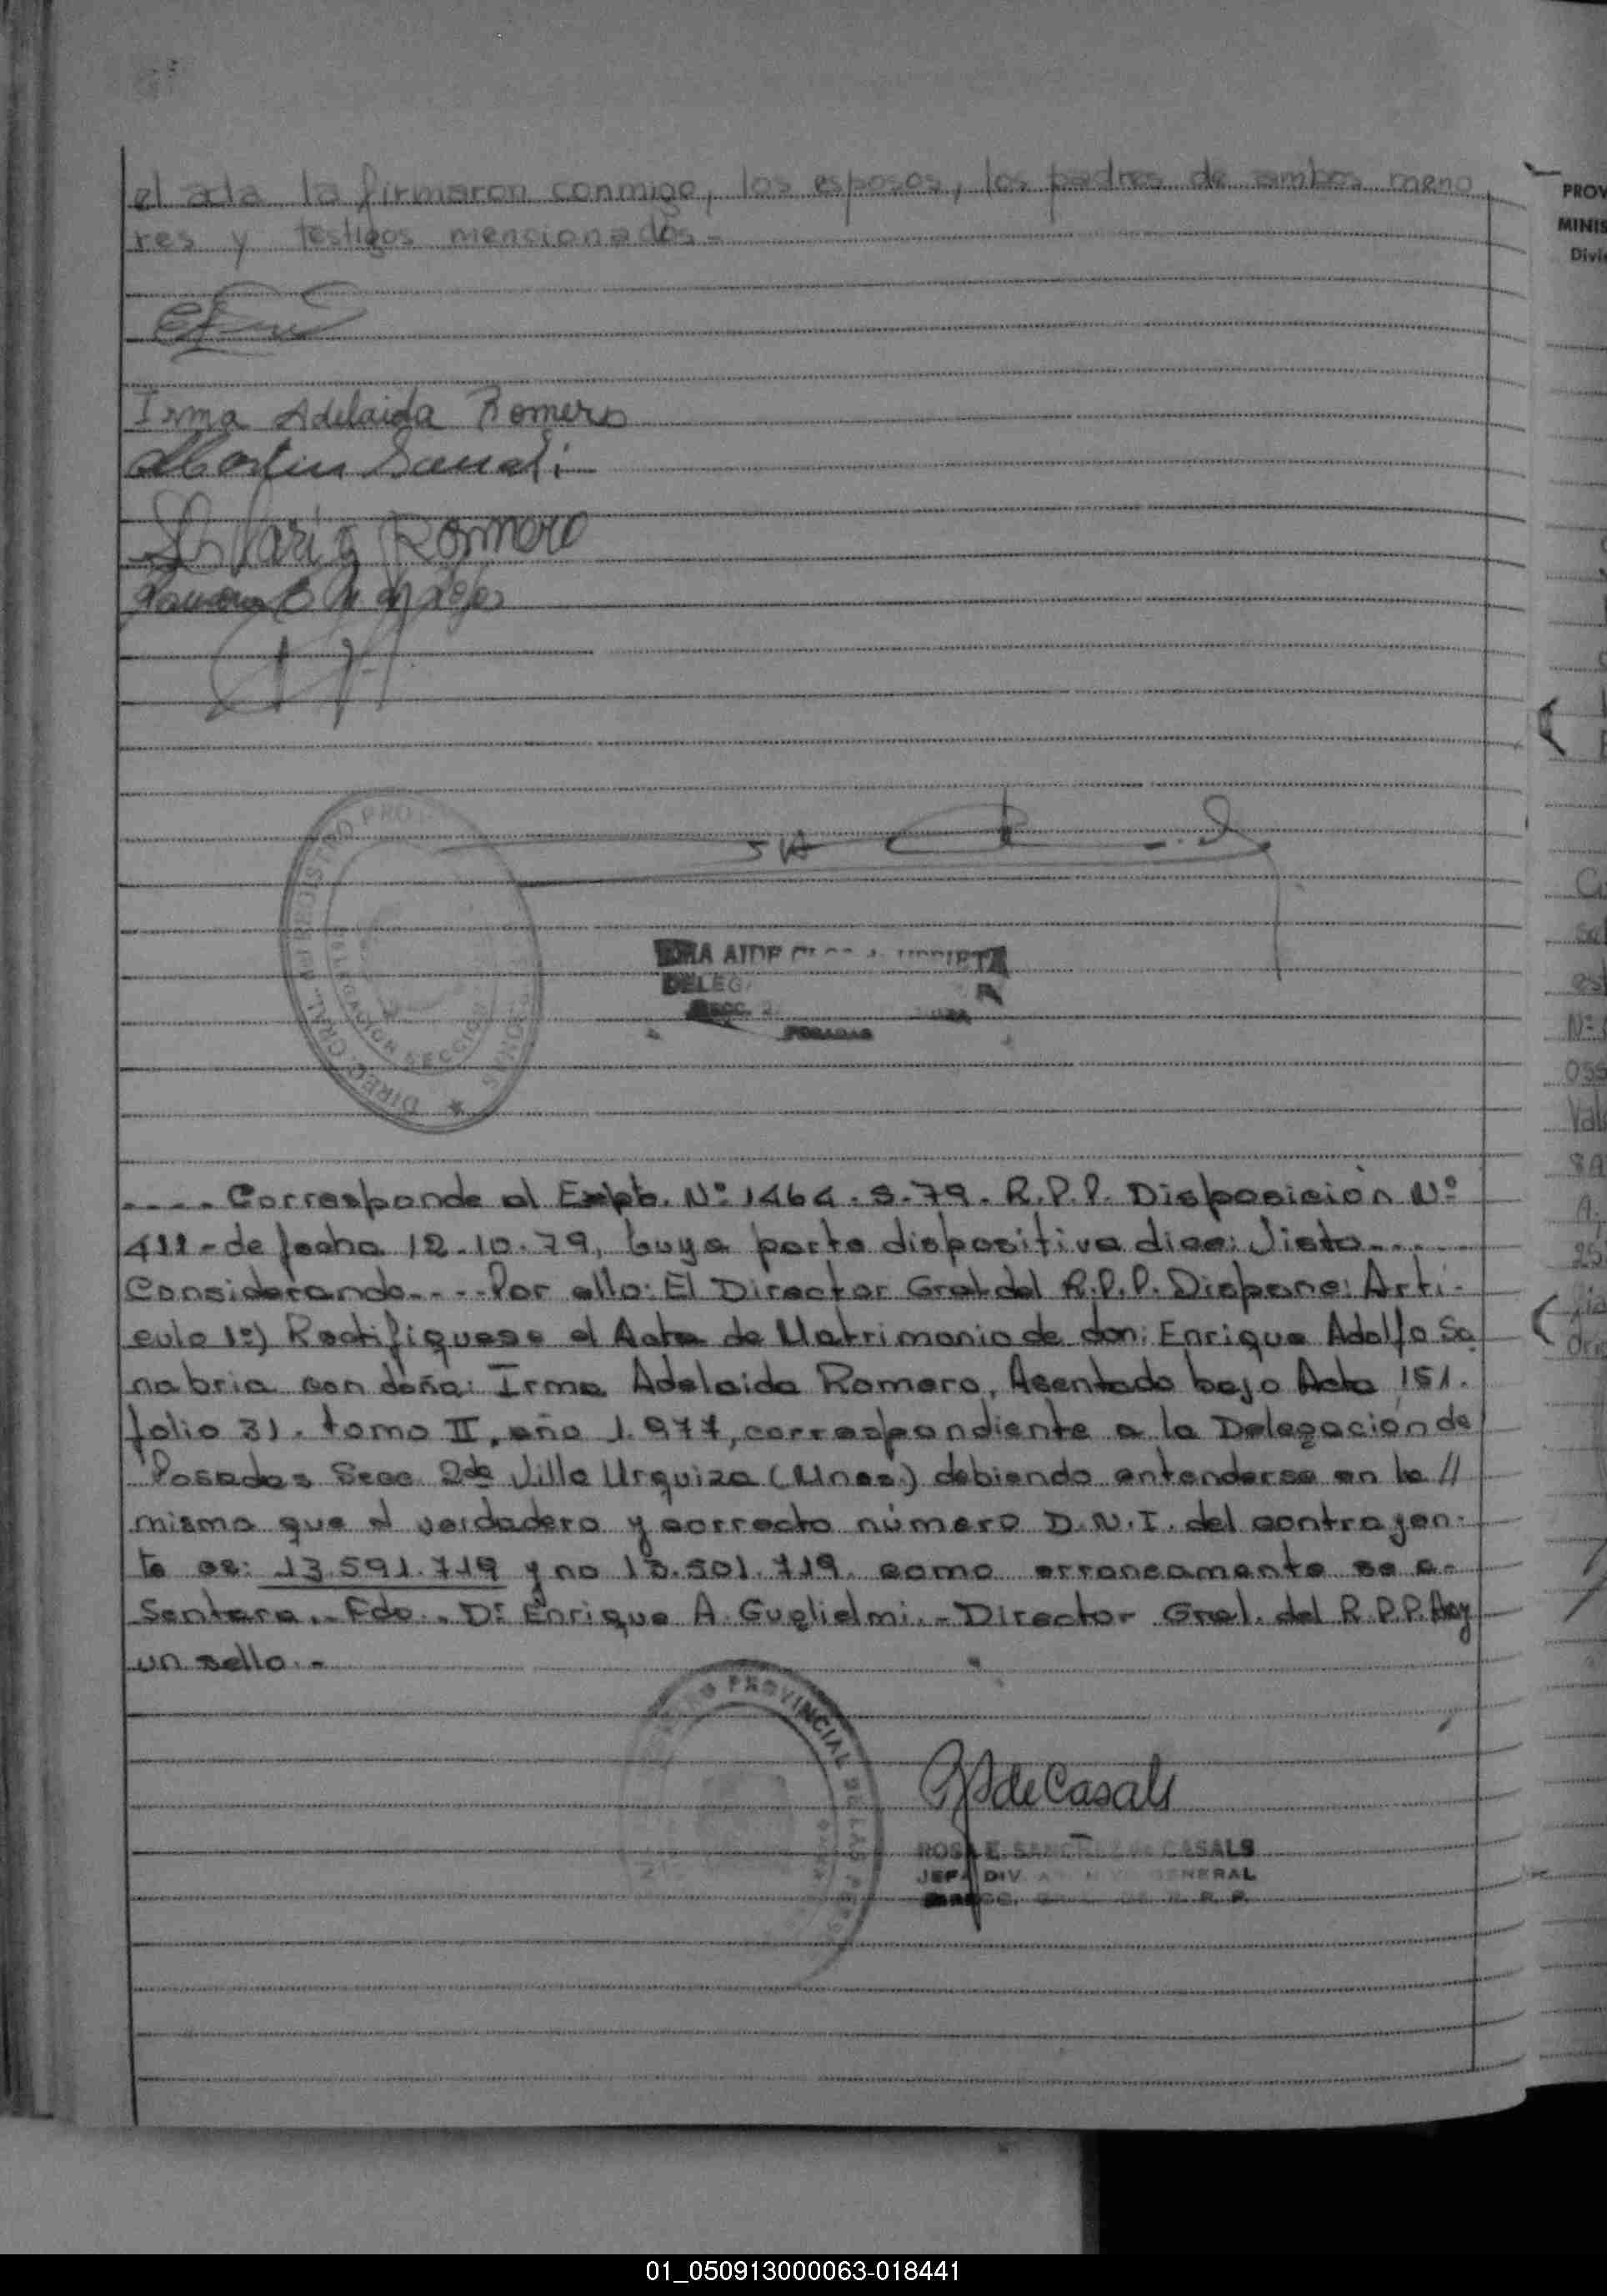 el acta la firmaron conmigo, los esposos, los padres de ambos meno
res y testigos mencionados.-
Irma Adelaida Romero
Romero
DELEG
POSADAS
DIREC. GRAL. DEL REGISTRO PRO
DELEGACION SECCION
.... Corresponde al Expte. Nº 1464.S.79. R.P.P. Disposición Nº
411-de fecha 12.10.79, Cuya parte dispositiva dice: Visto....
Considerando.... Por ello: El Director Gral del R.P.P. Dispone: Arti-
culo 1º) Rectifíquese el Acta de Matrimonio de don: Enrique Adolfo Sa
nabria con doña: Irma Adelaida Romero, Asentado bajo Acta 151.
folio 31. tomo II, año 1.977, correspondiente a la Delegación de
Posadas Secc 2da Villa Urquiza (Mnes.) debiendo entenderse en la //
misma que el verdadero y correcto número D.N.I. del contrayen-
te es: 13.591.719 y no 13.501.719. como erroneamente se a-
sentara.- Fdo.. Dr Enrique A. Guglielmi.- Director Gnel. del R.P.P. Hay
un sello.-
PROVINCIAL DE LAS PERS
de Casals
ROSA E. SANCHEZ de CASALS
JEFA DIV. ARCHIVO GENERAL
R. P. P.
PROV
MINIS
Divi
01_050913000063-018441